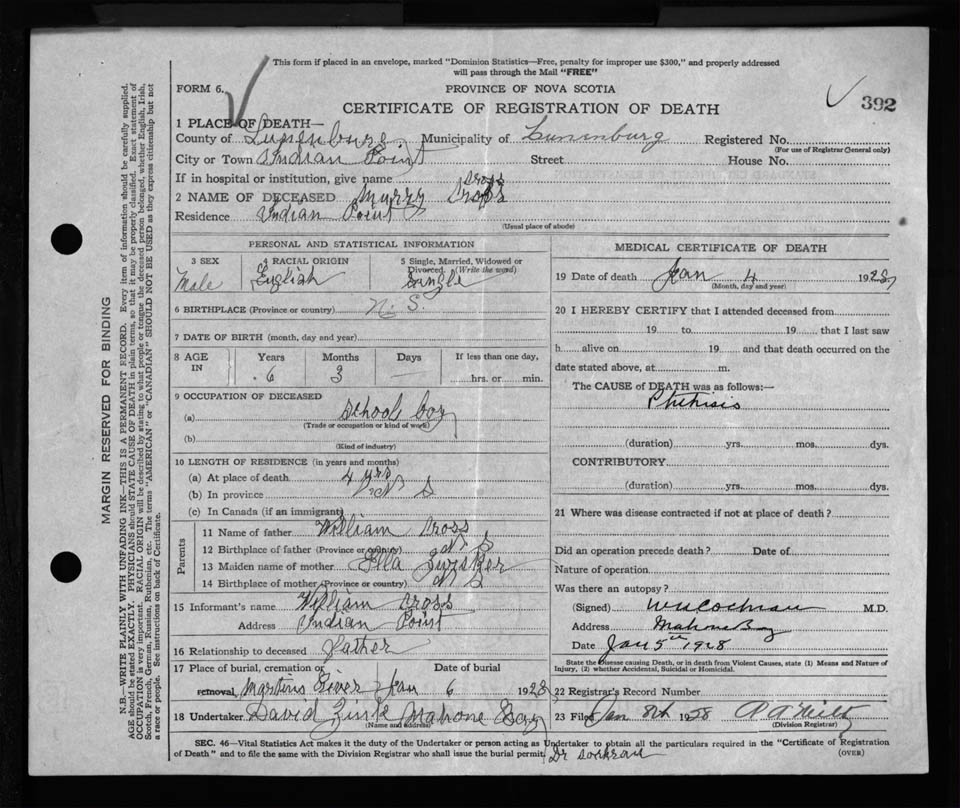 This form if placed in an envelope, marked "Dominion Statistics—Free, penalty for improper use $300," and properly addressed
will pass through the Mail "FREE"
FORM 6.
PROVINCE OF NOVA SCOTIA
392
CERTIFICATE OF REGISTRATION OF DEATH
1 PLACE OF DEATH—
County of Lunenburg Municipality of Lunenburg Registered No.
(For use of Registrar General only)
City or Town Indian Point Street House No.
If in hospital or institution, give name
Cross
2 NAME OF DECEASED Murry Cross
Residence Indian Point
(Usual place of abode)
PERSONAL AND STATISTICAL INFORMATION
3 SEX 4 RACIAL ORIGIN 5 Single, Married, Widowed or Divorced. (Write the word)
Male English Single
6 BIRTHPLACE (Province or country) N. S.
7 DATE OF BIRTH (month, day and year)
8 AGE IN Years Months Days If less than one day,
6 3 — hrs. or min.
9 OCCUPATION OF DECEASED
(a) School boy
(Trade or occupation or kind of work)
(b)
(Kind of industry)
10 LENGTH OF RESIDENCE (in years and months)
(a) At place of death 4 yrs
(b) In province N S
(c) In Canada (if an immigrant)
Parents
11 Name of father William Cross
12 Birthplace of father (Province or country) N S
13 Maiden name of mother Ella
14 Birthplace of mother (Province or country) N S
15 Informant's name William Cross
Address Indian Point
16 Relationship to deceased Father
17 Place of burial, cremation or Date of burial
removal, Martins River Jan 6 1928
18 Undertaker David Zinck Mahone Bay
(Name and address)
MEDICAL CERTIFICATE OF DEATH
19 Date of death Jan 4 1928
(Month, day and year)
20 I HEREBY CERTIFY that I attended deceased from
19 to 19 , that I last saw
h alive on 19 and that death occurred on the
date stated above, at m.
The CAUSE of DEATH was as follows:—
Phthisis
(duration) yrs. mos. dys.
CONTRIBUTORY
(duration) yrs. mos. dys.
21 Where was disease contracted if not at place of death?
Did an operation precede death? Date of
Nature of operation
Was there an autopsy?
(Signed) W N Cochran M.D.
Address Mahone Bay
Date Jan 5th 1928
State the Disease causing Death, or in death from Violent Causes, state (1) Means and Nature of
Injury, (2) whether Accidental, Suicidal or Homicidal.
22 Registrar's Record Number
23 Filed Jan 8th 1928
(Division Registrar)
SEC. 46—Vital Statistics Act makes it the duty of the Undertaker or person acting as Undertaker to obtain all the particulars required in the "Certificate of Registration
of Death" and to file the same with the Division Registrar who shall issue the burial permit. Dr Cochran (OVER)
MARGIN RESERVED FOR BINDING
N.B.—WRITE PLAINLY WITH UNFADING INK—THIS IS A PERMANENT RECORD. Every item of information should be carefully supplied.
AGE should be stated EXACTLY. PHYSICIANS should STATE CAUSE OF DEATH in plain terms, so that it may be properly classified. Exact statement of
OCCUPATION is very important. RACIAL ORIGIN will be described by stating to what people or tongue the deceased person belonged, whether English, Irish,
Scotch, French, German, Russian, Ruthenian, etc. The terms "AMERICAN" or "CANADIAN" SHOULD NOT BE USED as they express citizenship but not
a race or people. See instructions on back of Certificate.